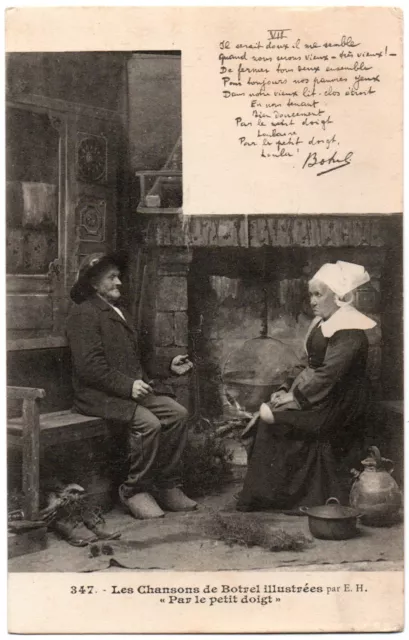 VII
Il serait doux il me semble
Quand nous serons vieux - très vieux! -
De fermer tous deux ensemble
Pour toujours nos pauvres yeux
Dans notre vieux lit-clos étroit
En nous tenant
Bien doucement
Par le petit doigt
Lonlaire
Par le petit doigt,
Lonla!
Botrel
347. - Les Chansons de Botrel illustrées par E. H.
« Par le petit doigt »